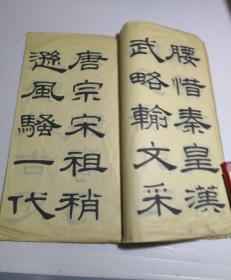 腰惜秦皇漢
武略輸文采
唐宗宋祖稍
遜風騷一代